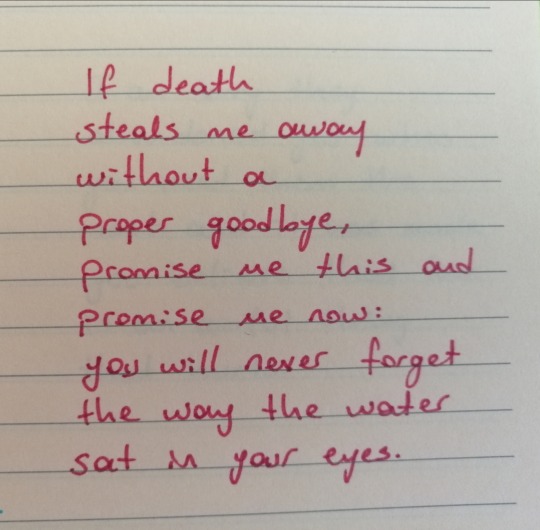 If death
steals me away
without a
proper goodbye,
promise me this and
promise me now:
you will never forget
the way the water
sat in your eyes.